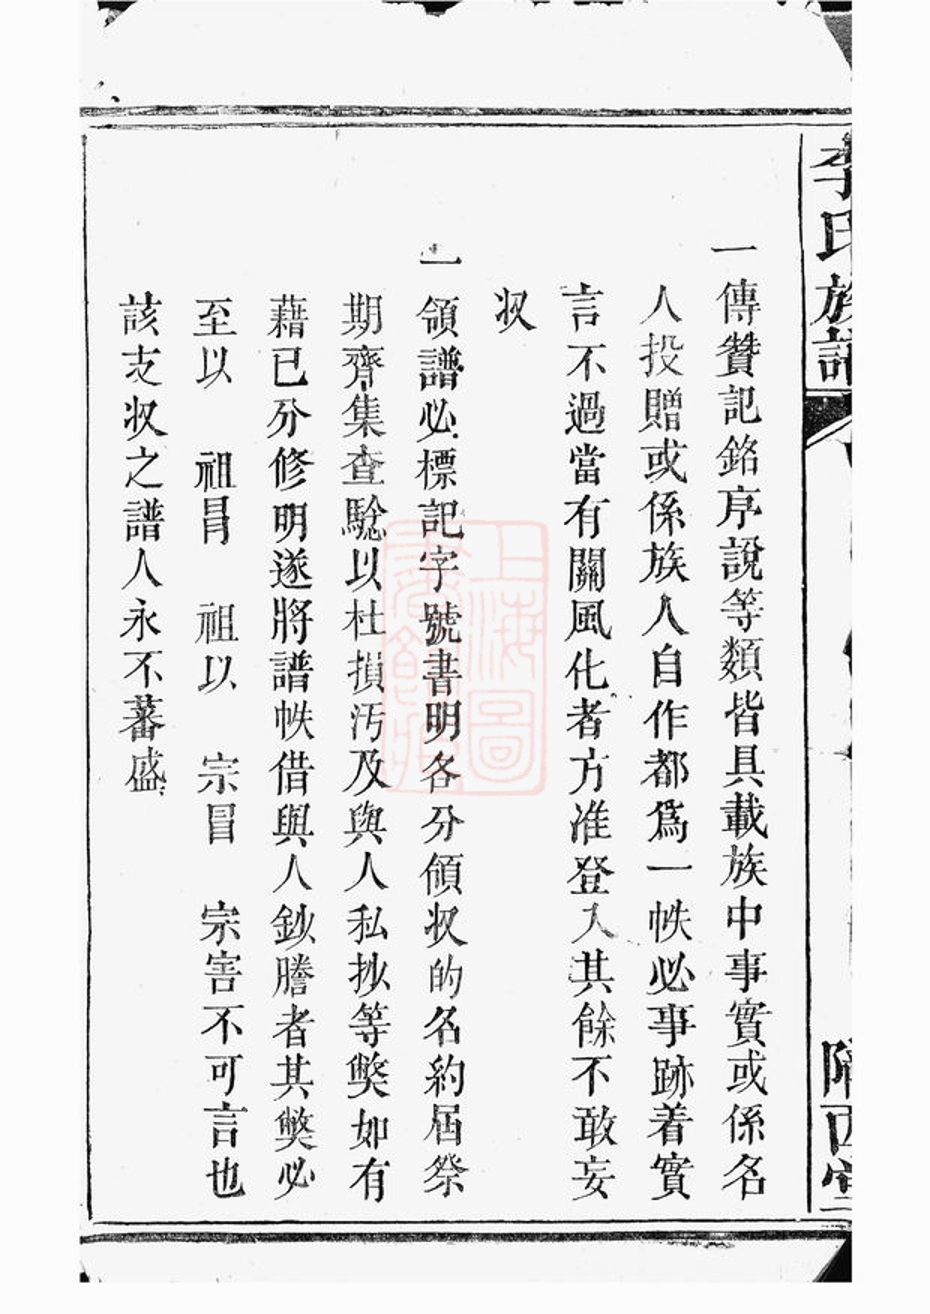 李氏族譜
隴西堂
一傳贊記銘序說等類皆具載族中事實或係名
人投贈或係族人自作都爲一帙必事跡着實
言不過當有關風化者方准登入其餘不敢妄
収
一領譜必標記字號書明各分領収的名約屆祭
期齊集查驗以杜損污及與人私抄等獘如有
藉已分修明遂將譜帙借與人鈔謄者其獘必
至以 祖冒 祖以 宗冒 宗害不可言也
該支収之譜人永不蕃盛
上海圖